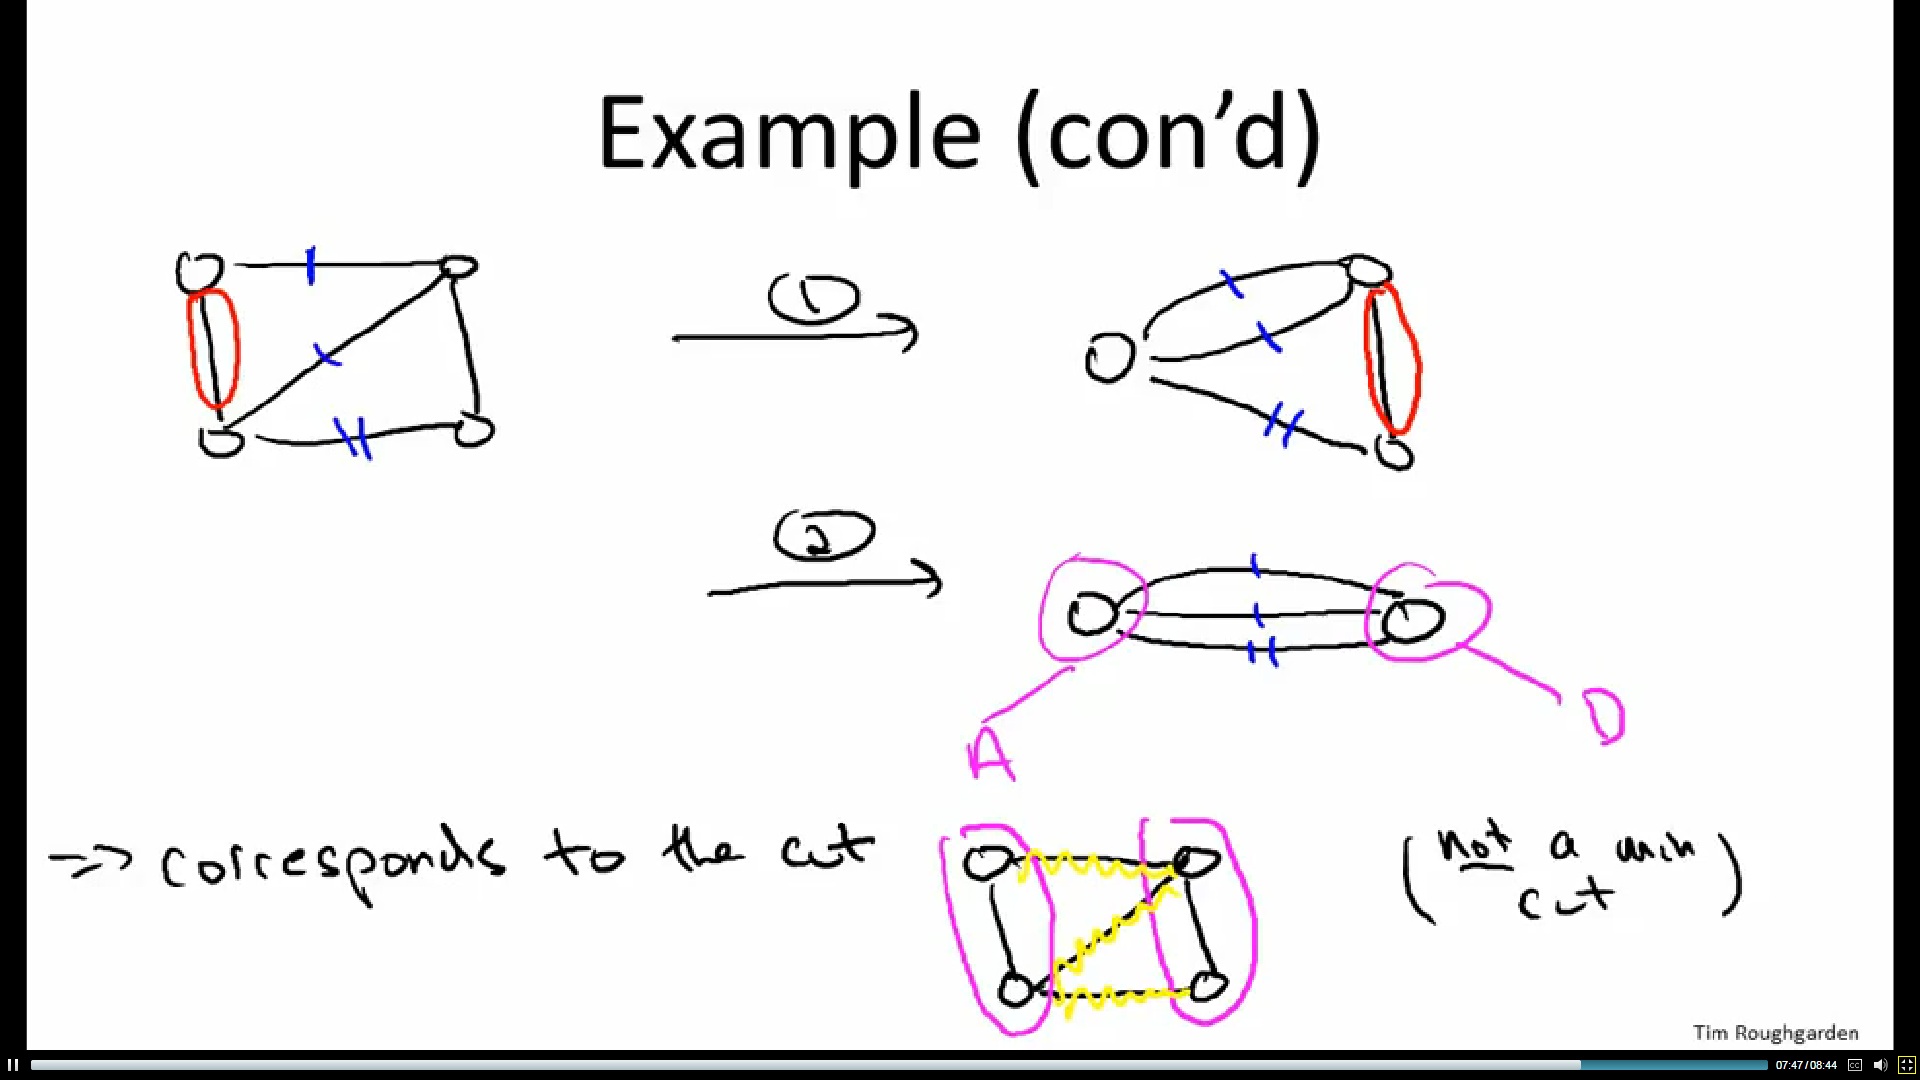 Example (con’d)
1
2
A
B
=> corresponds to the cut
(not a min
cut)
Tim Roughgarden
07:47/08:44
CC